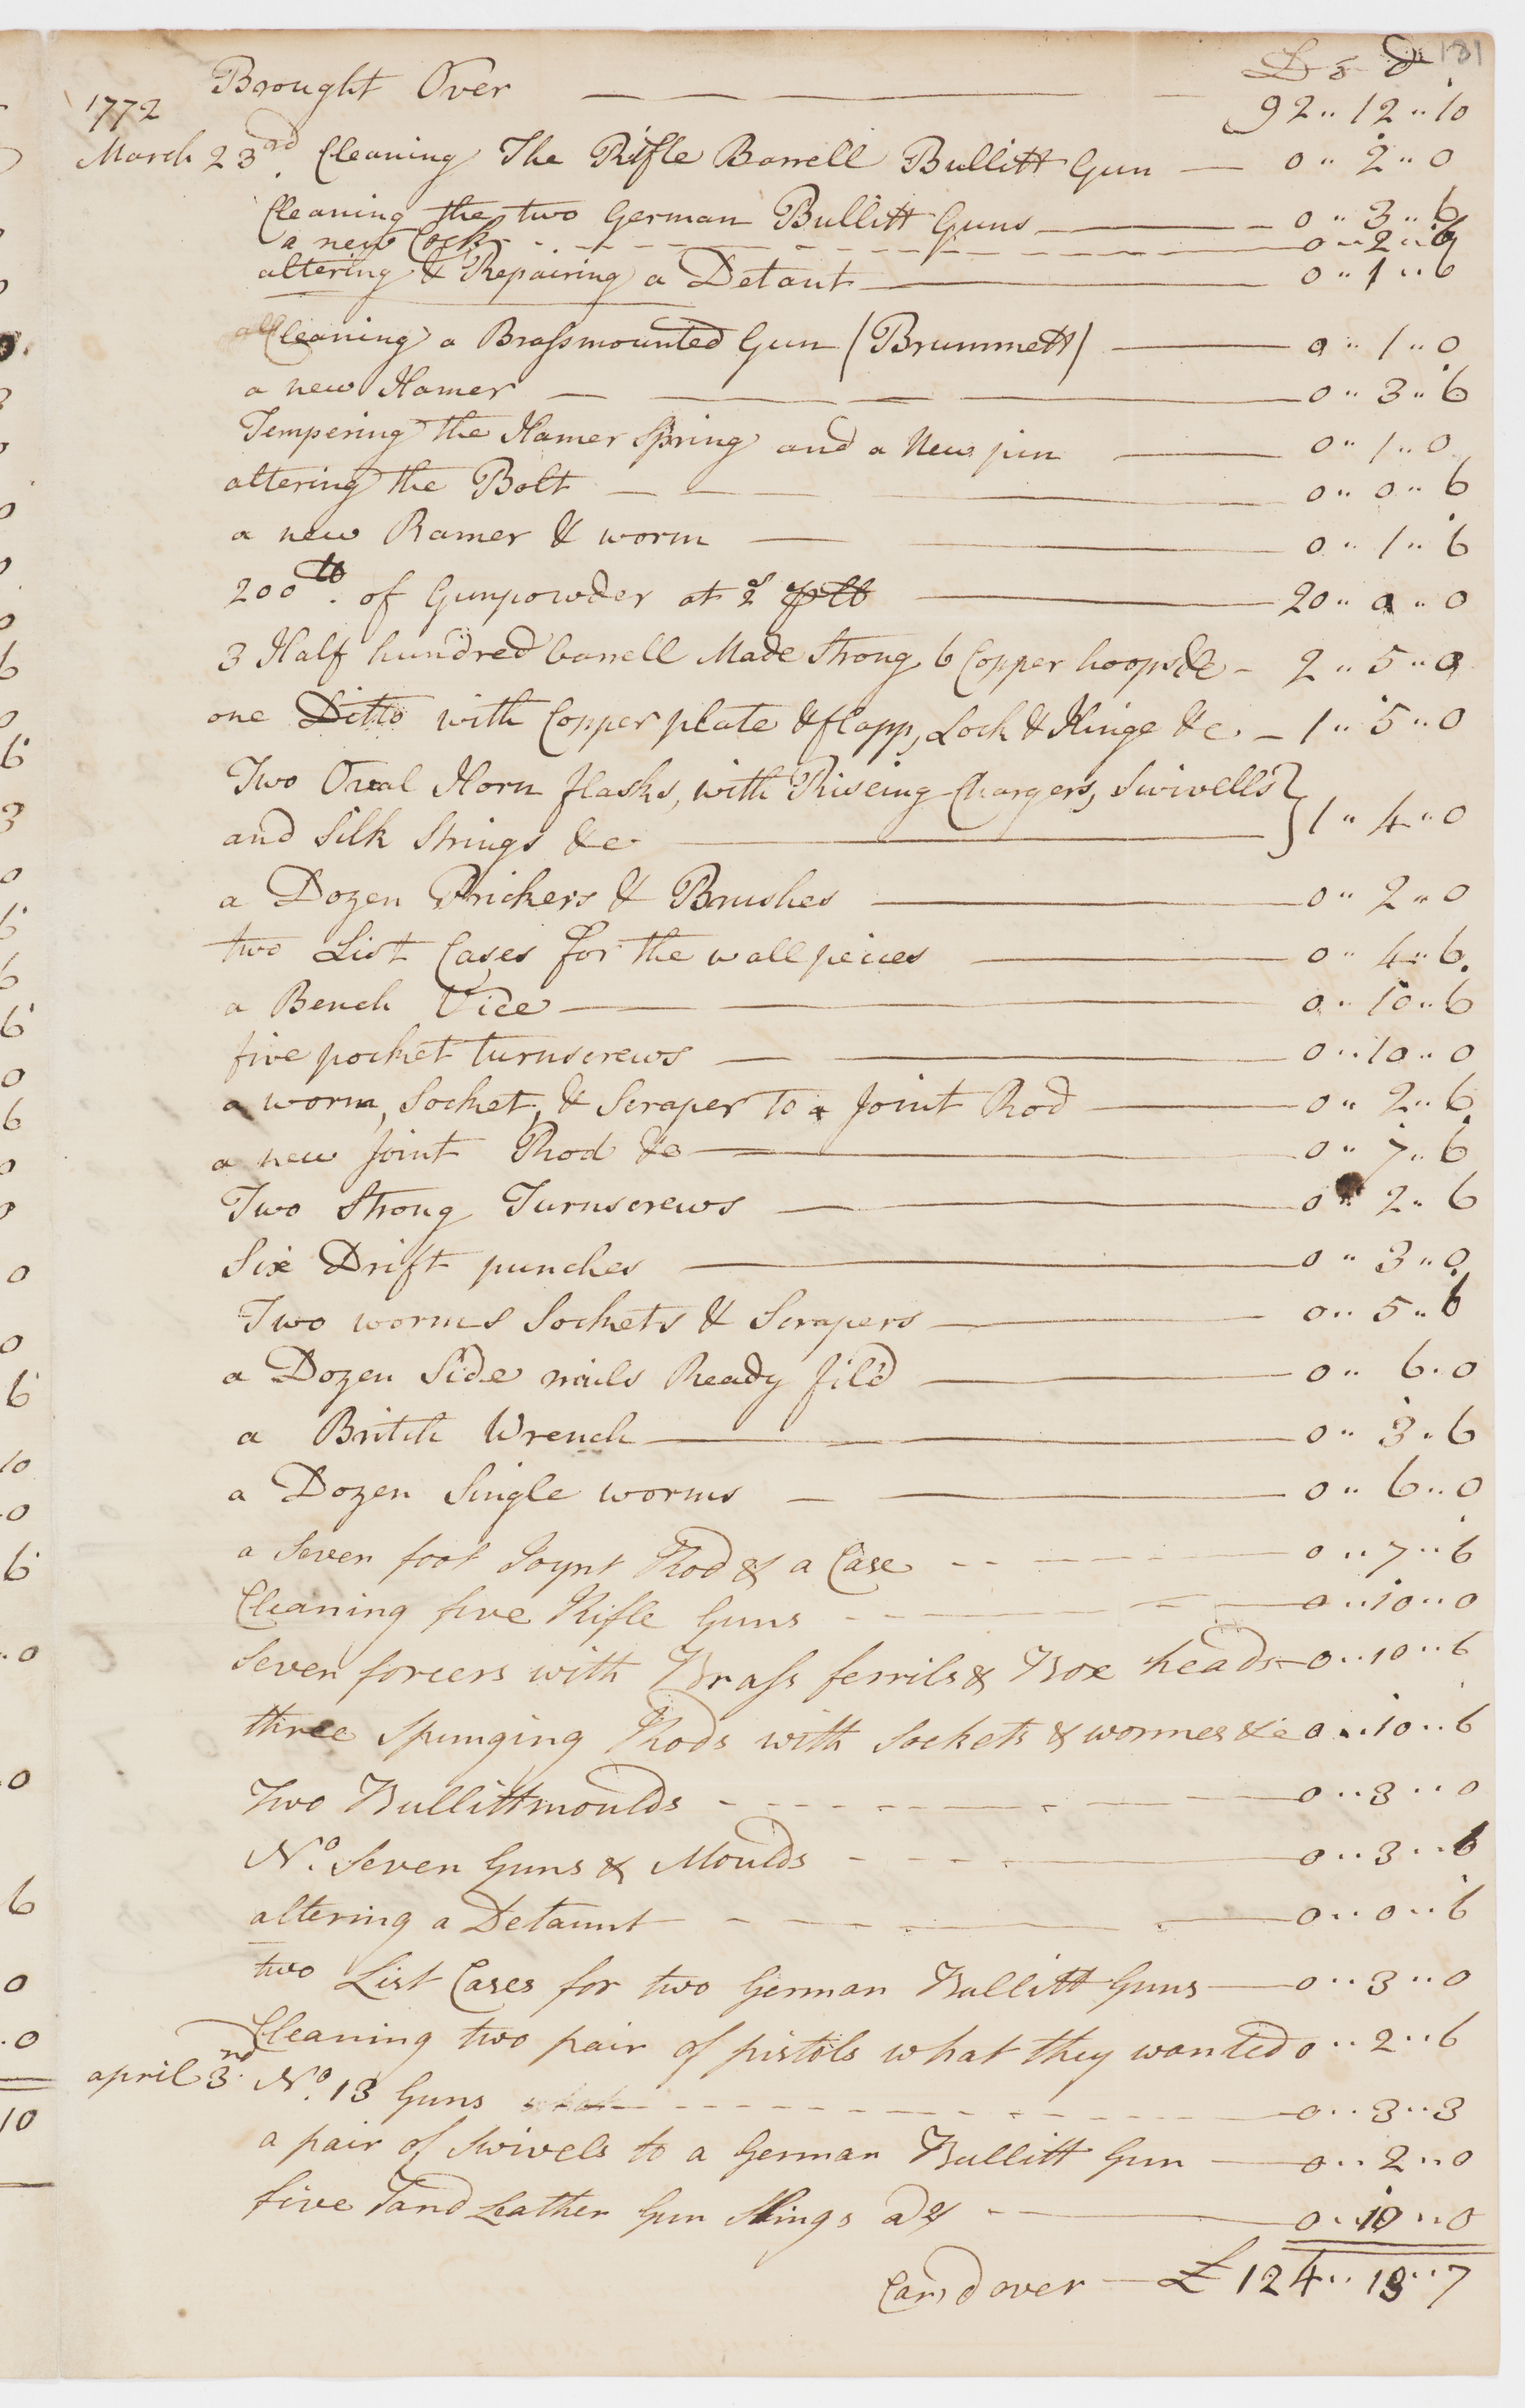 131
£ s d
Brought Over — 92 .. 12 .. 10
1772
March 23rd. Cleaning The Rifle Barrell Bullitt Gun — 0 .. 2 .. 0
Cleaning the two German Bullitt Guns — 0 .. 3 .. 6
a new Cock — 0 .. 2 ..
altering & Repairing a Detant — 0 .. 1 .. 6
Cleaning a Brassmounted Gun (Brummett) — 0 .. 1 .. 0
a new Hamer — 0 .. 3 .. 6
Tempering the Hamer Spring and a New pin — 0 .. 1 .. 0
altering the Bolt — 0 .. 0 .. 6
a new Ramer & worm — 0 .. 1 .. 6
200lb. of Gunpowder at 2s plb — 20 .. 0 .. 0
3 Half hundred barrell Made Strong 6 Copper hoops &c — 2 .. 5 .. 0
one Ditto with Copper plate & flapp, Lock & Hinge &c. — 1 .. 5 .. 0
Two Oval Horn flasks, with Riseing Chargers, Swivells }
and Silk Strings &c — } 1 .. 4 .. 0
a Dozen Prickers & Brushes — 0 .. 2 .. 0
two List Cases for the wall peices — 0 .. 4 .. 6
a Bench Vice — 0 .. 10 .. 6
five pocket turnscrews — 0 .. 10 .. 0
a worm, Socket, & Scraper To a Joint Rod — 0 .. 2 .. 6
a new Joint Rod &c — 0 .. 7 .. 6
Two Strong Turnscrews — 0 .. 2 .. 6
Six Drift punches — 0 .. 3 .. 0
Two worms Sockets & Scrapers — 0 .. 5 .. 6
a Dozen Side nails Ready fil'd — 0 .. 6 .. 0
a Britch Wrench — 0 .. 3 .. 6
a Dozen Single worms — 0 .. 6 .. 0
a Seven foot Joynt Rod & a Case — 0 .. 7 .. 6
Cleaning five Rifle Guns — 0 .. 10 .. 0
Seven forcers with Brass ferrils & Box heads — 0 .. 10 .. 6
three Spunging Rods with Sockets & wormes &c 0 .. 10 .. 6
Two Bullittmoulds — 0 .. 3 .. 0
No. Seven Guns & Moulds — 0 .. 3 .. 6
altering a Detaunt — 0 .. 0 .. 6
two List Cases for two German Bullitt Guns — 0 .. 3 .. 0
Cleaning two pair of pistols what they wanted 0 .. 2 .. 6
april 3rd. No. 13 Guns — 0 .. 3 .. 3
a pair of Swivels to a German Bullitt Gun — 0 .. 2 .. 0
five Tand Leather Gun Slings a 2s — 0 .. 10 .. 0
Card over — £ 124 .. 13 .. 7